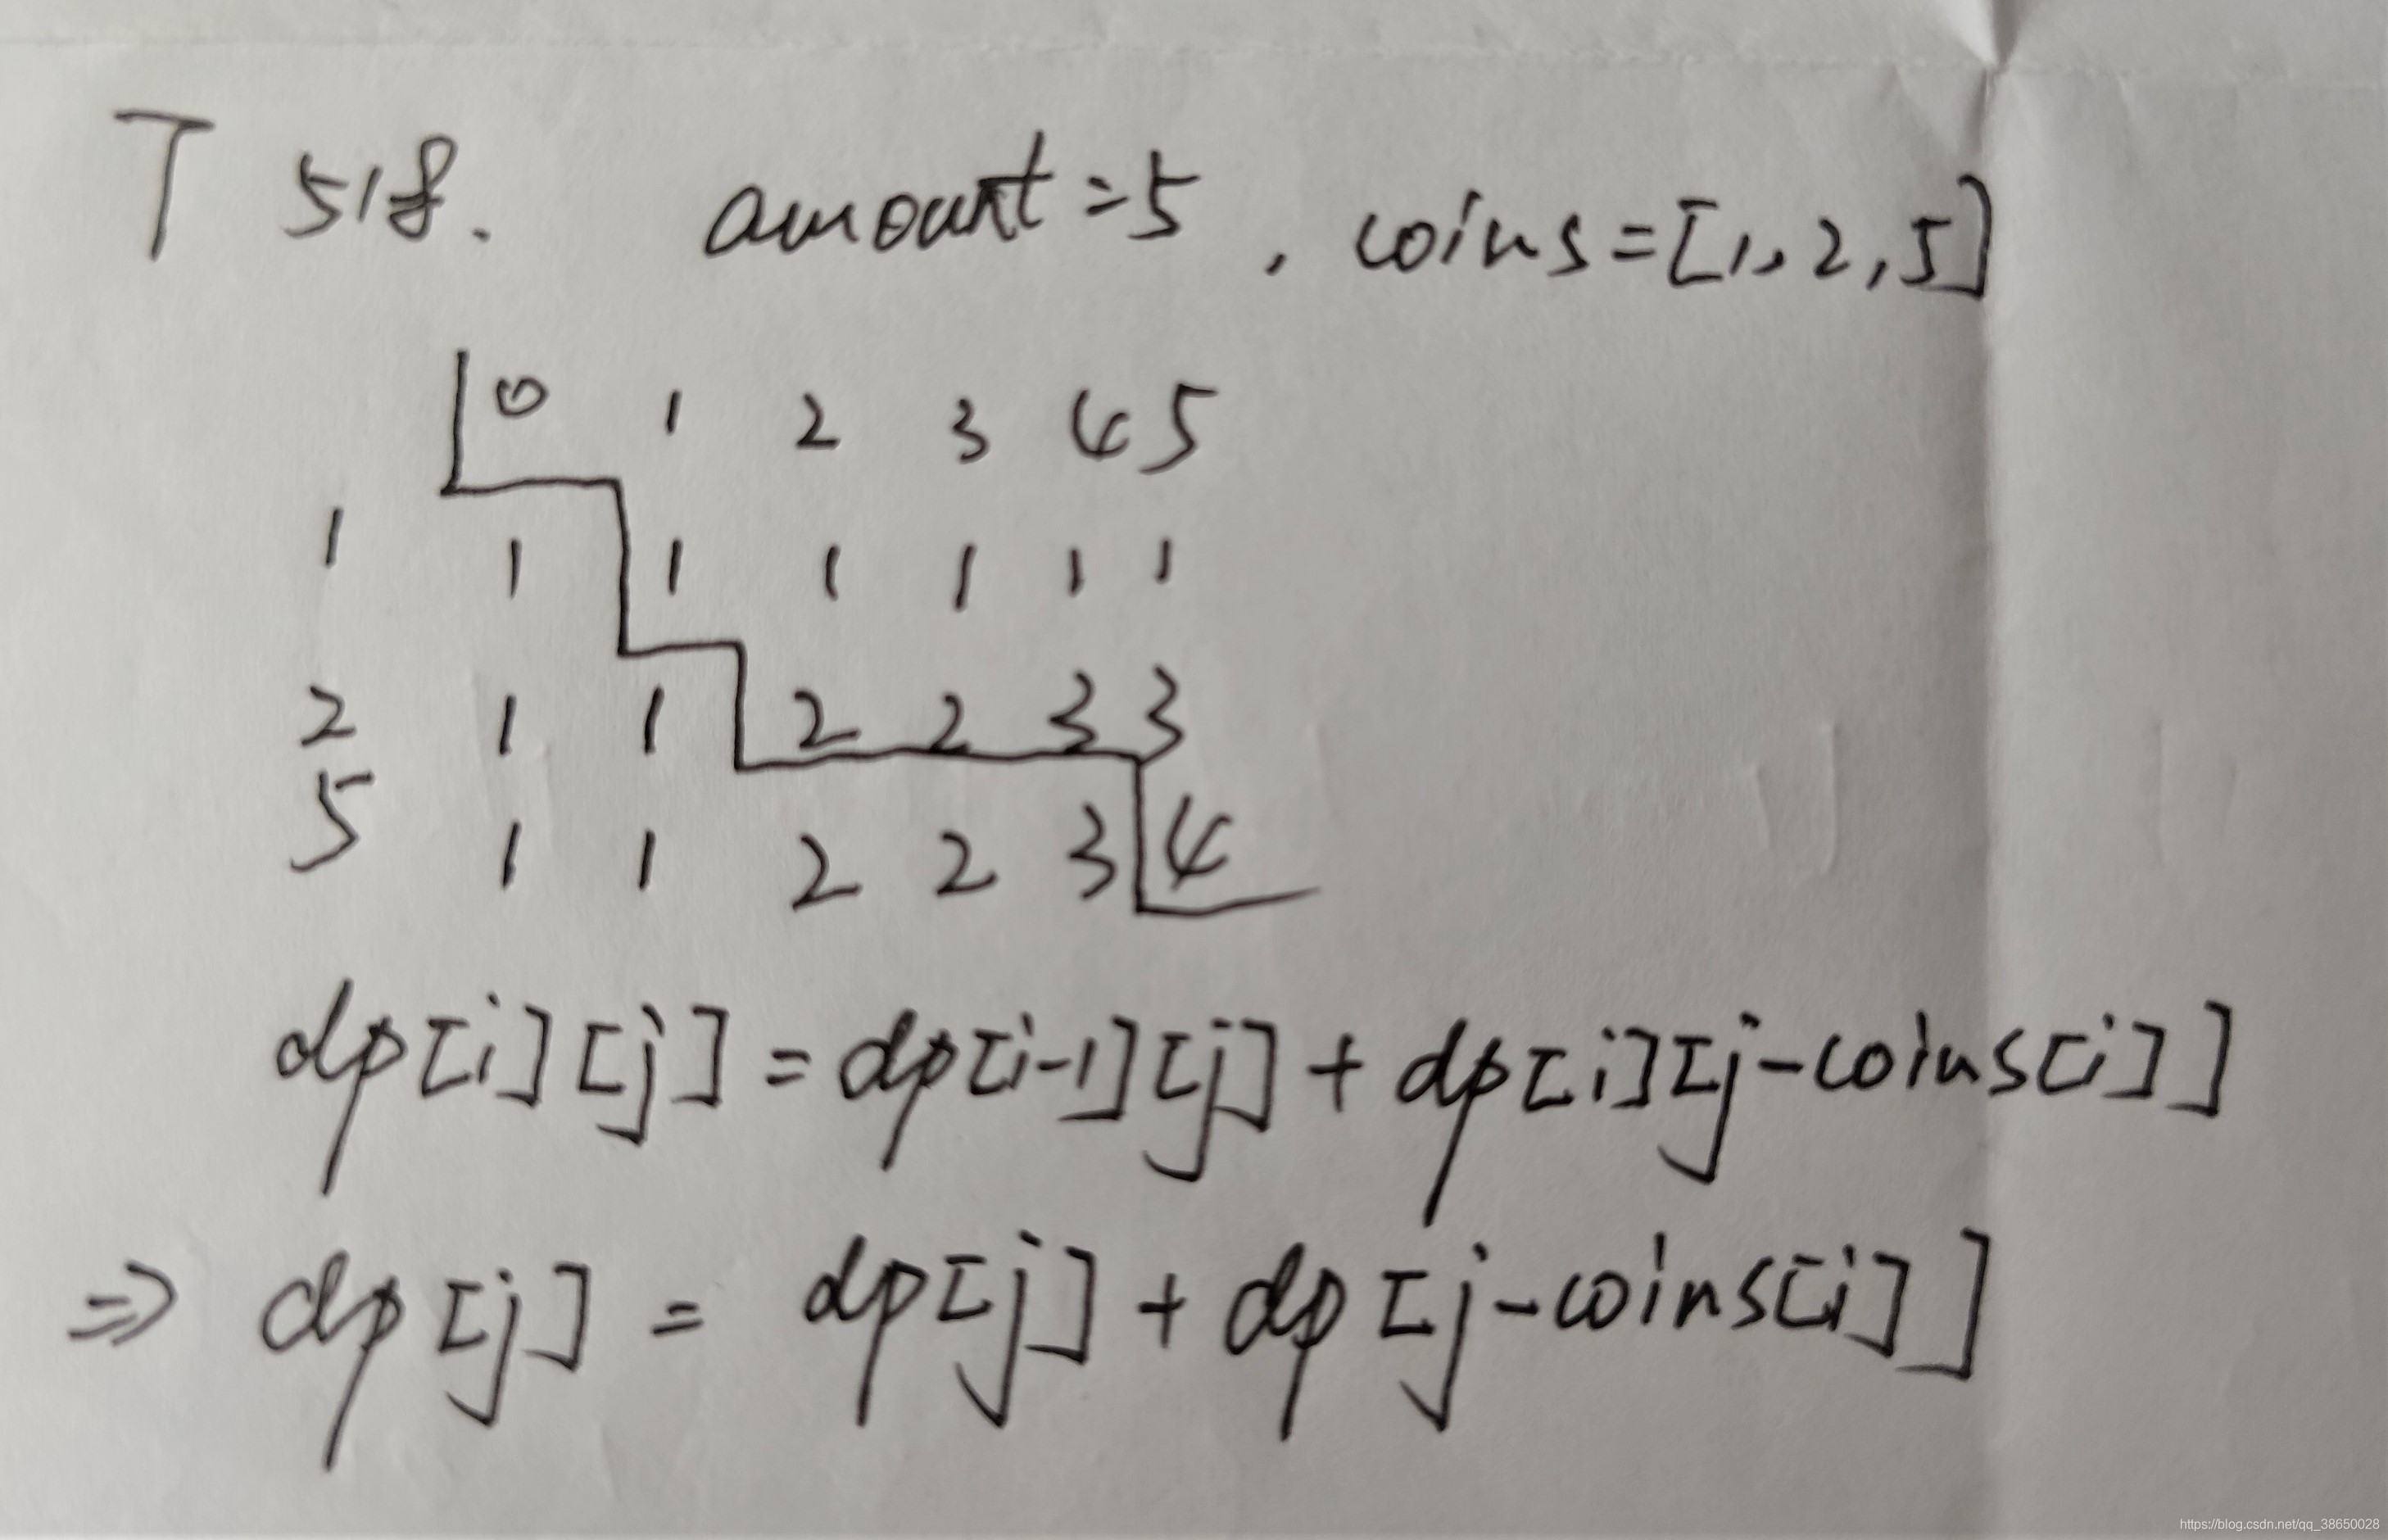 T 518. amount=5, coins=[1,2,5]
0 1 2 3 4 5
1 1 1 1 1 1 1
2 1 1 2 2 3 3
5 1 1 2 2 3 4
dp[i][j]=dp[i-1][j]+dp[i][j-coins[i]]
⇒ dp[j] = dp[j]+dp[j-coins[i]]
https://blog.csdn.net/qq_38650028